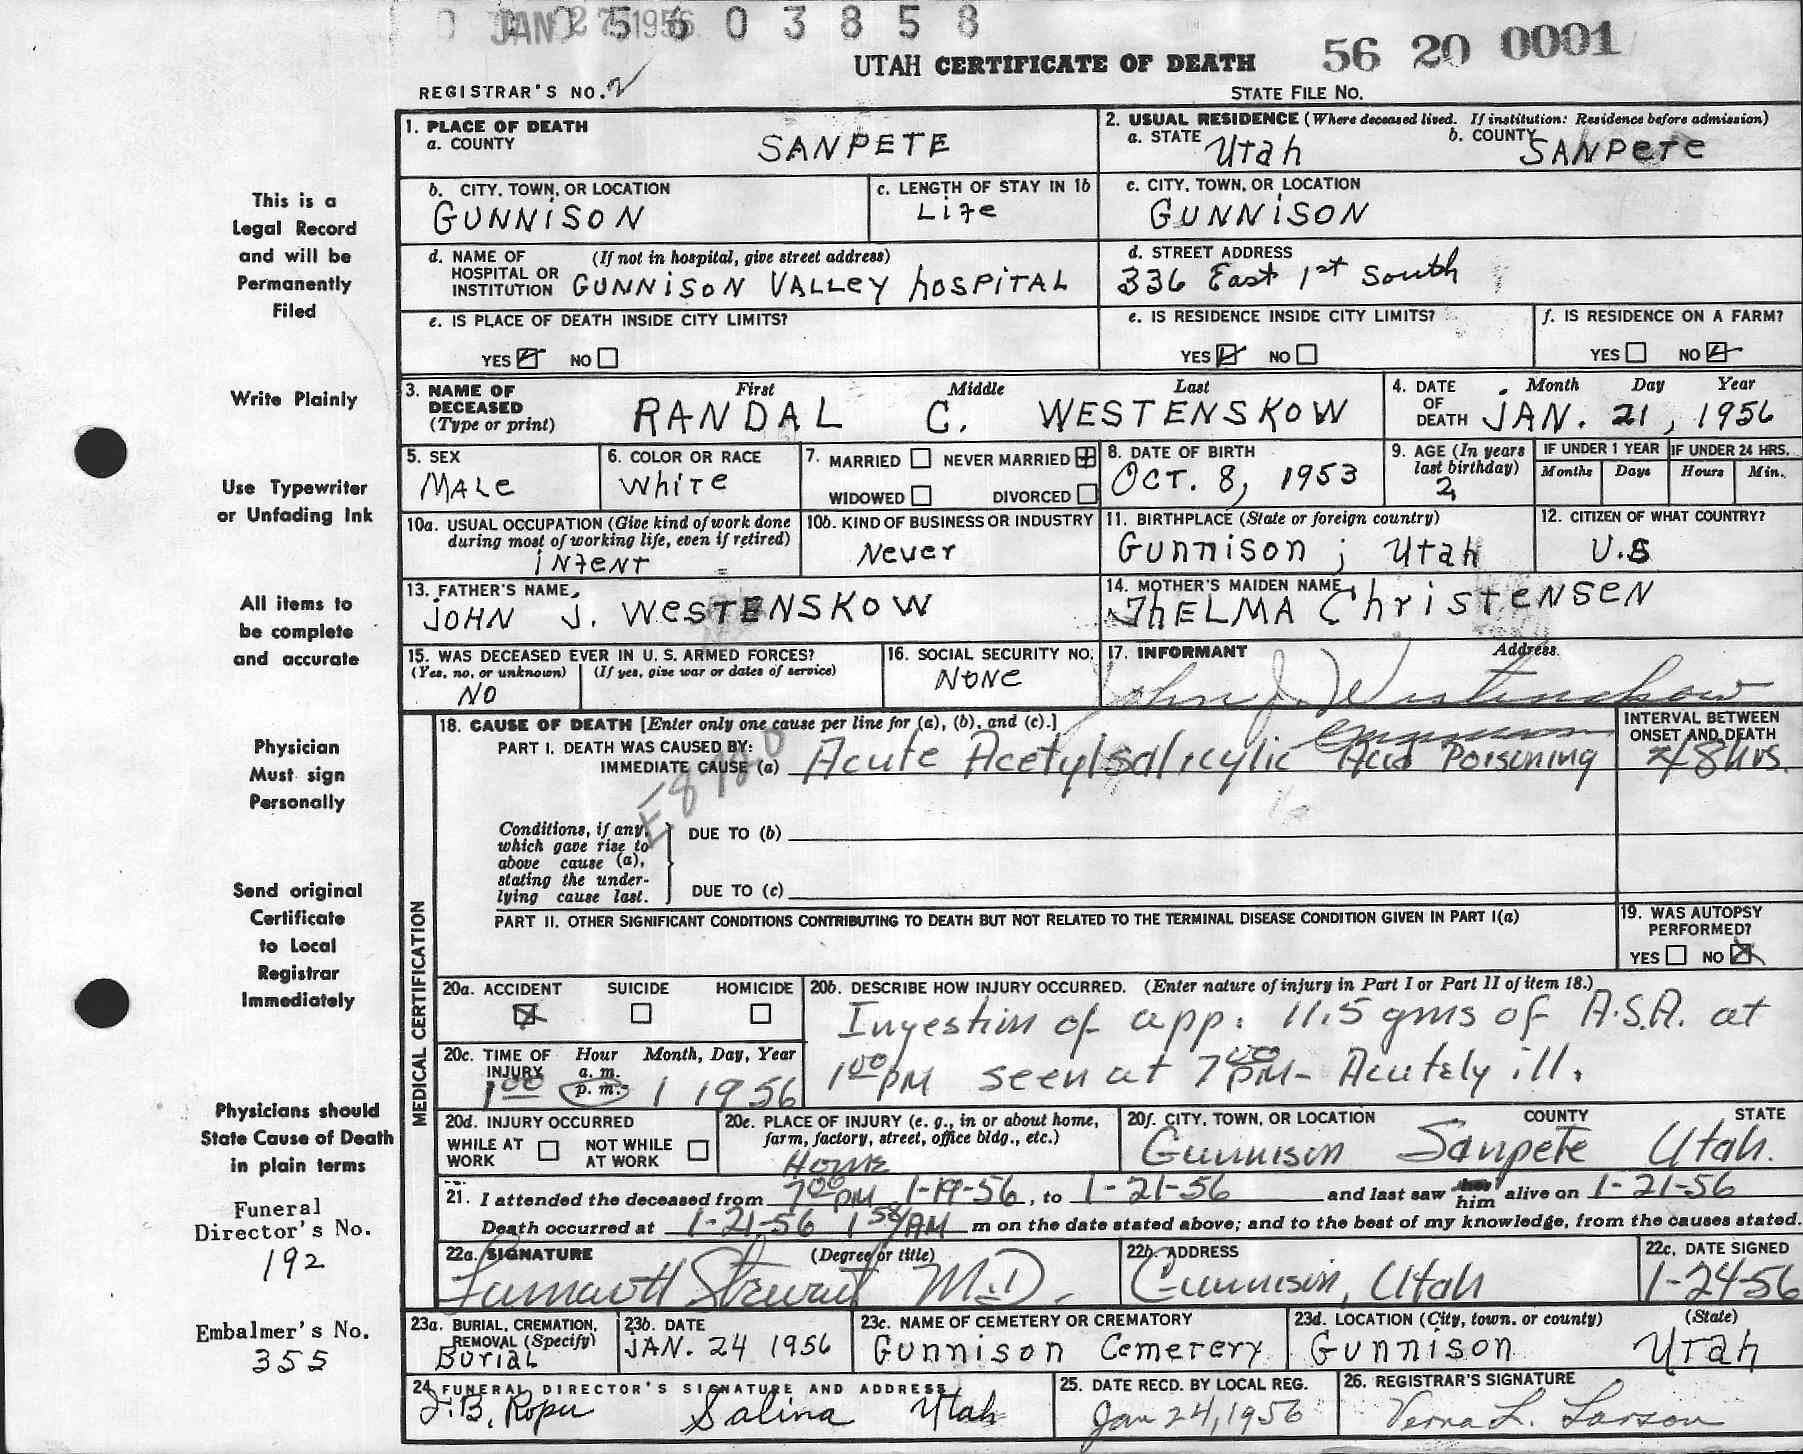 JAN 27 1956
0 3 8 5 8
UTAH CERTIFICATE OF DEATH
56 20 0001
REGISTRAR'S NO. 2
STATE FILE NO.
This is a
Legal Record
and will be
Permanently
Filed
Write Plainly
Use Typewriter
or Unfading Ink
All items to
be complete
and accurate
Physician
Must sign
Personally
Send original
Certificate
to Local
Registrar
Immediately
Physicians should
State Cause of Death
in plain terms
Funeral
Director's No.
192
Embalmer's No.
355
1. PLACE OF DEATH
a. COUNTY
SANPETE
2. USUAL RESIDENCE (Where deceased lived. If institution: Residence before admission)
a. STATE Utah
b. COUNTY SANPETE
b. CITY, TOWN, OR LOCATION
GUNNISON
c. LENGTH OF STAY IN 1b
Life
c. CITY, TOWN, OR LOCATION
GUNNISON
d. NAME OF (If not in hospital, give street address)
HOSPITAL OR
INSTITUTION GUNNISON VALLEY HOSPITAL
d. STREET ADDRESS
336 East 1st South
e. IS PLACE OF DEATH INSIDE CITY LIMITS?
YES NO
e. IS RESIDENCE INSIDE CITY LIMITS?
YES NO
f. IS RESIDENCE ON A FARM?
YES NO
3. NAME OF
DECEASED
(Type or print)
First Middle Last
RANDAL C. WESTENSKOW
4. DATE
OF
DEATH
Month Day Year
JAN. 21, 1956
5. SEX
MALE
6. COLOR OR RACE
White
7. MARRIED NEVER MARRIED
WIDOWED DIVORCED
8. DATE OF BIRTH
OCT. 8, 1953
9. AGE (In years
last birthday)
2
IF UNDER 1 YEAR
Months Days
IF UNDER 24 HRS.
Hours Min.
10a. USUAL OCCUPATION (Give kind of work done
during most of working life, even if retired)
infent
10b. KIND OF BUSINESS OR INDUSTRY
Never
11. BIRTHPLACE (State or foreign country)
Gunnison ; Utah
12. CITIZEN OF WHAT COUNTRY?
U.S
13. FATHER'S NAME
JOHN J. WESTENSKOW
14. MOTHER'S MAIDEN NAME
THELMA Christensen
15. WAS DECEASED EVER IN U. S. ARMED FORCES?
(Yes, no, or unknown) (If yes, give war or dates of service)
NO
16. SOCIAL SECURITY NO.
NONE
17. INFORMANT Address
John J. Westenskow
18. CAUSE OF DEATH [Enter only one cause per line for (a), (b), and (c).]
PART I. DEATH WAS CAUSED BY:
IMMEDIATE CAUSE (a) Acute Acetylsalicylic Acid Poisoning
INTERVAL BETWEEN
ONSET AND DEATH
48 hrs.
Conditions, if any,
which gave rise to
above cause (a),
stating the under-
lying cause last.
DUE TO (b)
DUE TO (c)
PART II. OTHER SIGNIFICANT CONDITIONS CONTRIBUTING TO DEATH BUT NOT RELATED TO THE TERMINAL DISEASE CONDITION GIVEN IN PART I(a)
19. WAS AUTOPSY
PERFORMED?
YES NO
MEDICAL CERTIFICATION
20a. ACCIDENT SUICIDE HOMICIDE
20b. DESCRIBE HOW INJURY OCCURRED. (Enter nature of injury in Part I or Part II of item 18.)
Ingestion of app. 11.5 gms of A.S.A. at
1 00 PM seen at 7 00 PM - Acutely ill.
20c. TIME OF Hour Month, Day, Year
INJURY a. m.
1 00 p. m. 1 19 56
20d. INJURY OCCURRED
WHILE AT WORK NOT WHILE AT WORK
20e. PLACE OF INJURY (e. g., in or about home,
farm, factory, street, office bldg., etc.)
Home
20f. CITY, TOWN, OR LOCATION COUNTY STATE
Gunnison Sanpete Utah.
21. I attended the deceased from 7 00 PM 1-19-56, to 1-21-56 and last saw him alive on 1-21-56
Death occurred at 1-21-56 1 58 AM m on the date stated above; and to the best of my knowledge, from the causes stated.
22a. SIGNATURE (Degree or title)
Stewart M.D.
22b. ADDRESS
Gunnison, Utah
22c. DATE SIGNED
1-24-56
23a. BURIAL, CREMATION,
REMOVAL (Specify)
Burial
23b. DATE
JAN. 24 1956
23c. NAME OF CEMETERY OR CREMATORY
Gunnison Cemetery
23d. LOCATION (City, town, or county) (State)
Gunnison Utah
24. FUNERAL DIRECTOR'S SIGNATURE AND ADDRESS
Salina Utah
25. DATE RECD. BY LOCAL REG.
Jan 24, 1956
26. REGISTRAR'S SIGNATURE
Verna L. Larson